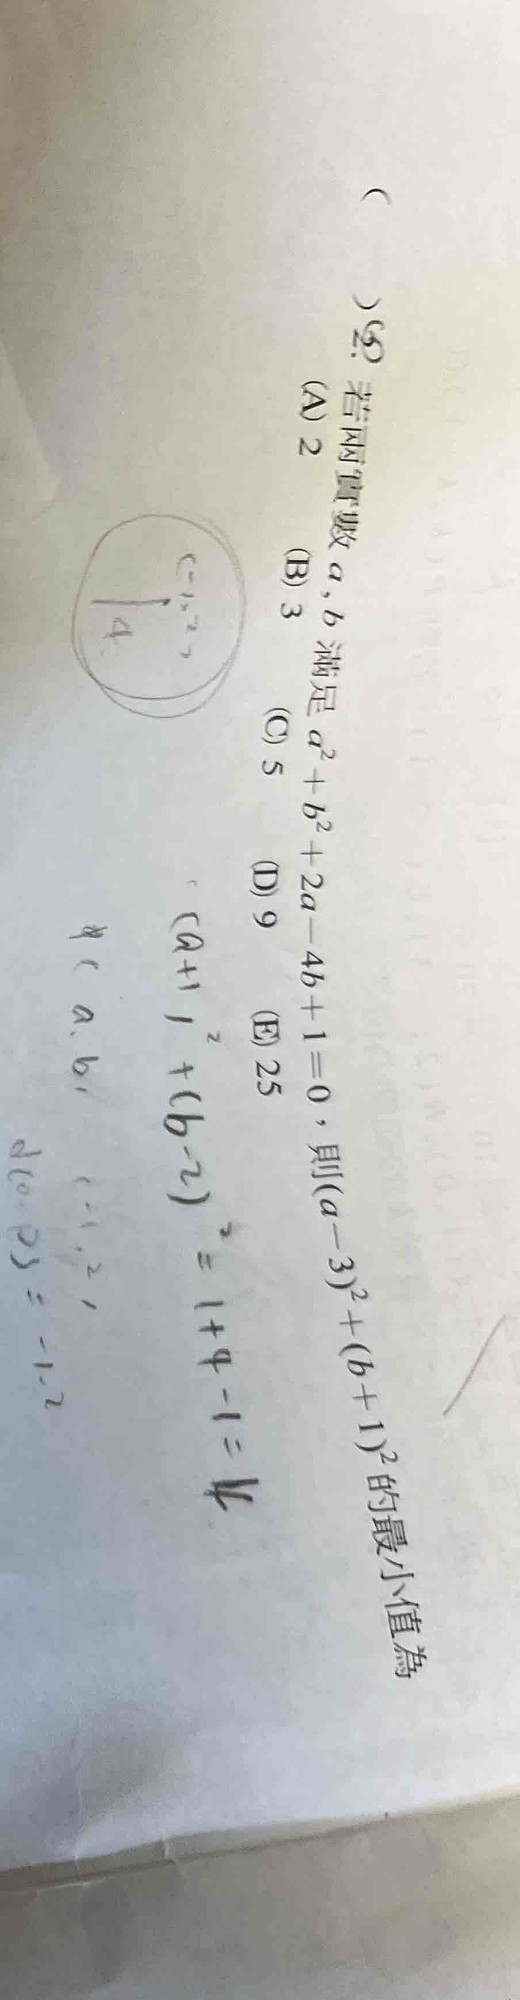 ( ) 若兩實數 a , b 滿足 a² + b² + 2a − 4b + 1 = 0 , 則 (a − 3)² + (b + 1)² 的最小值為
(A) 2 (B) 3 (C) 5 (D) 9 (E) 25
(a+1)² + (b-2)² = 1+4-1 = 4
(-1, 2)
4
( a. b) (-1, 2)
= -1-2